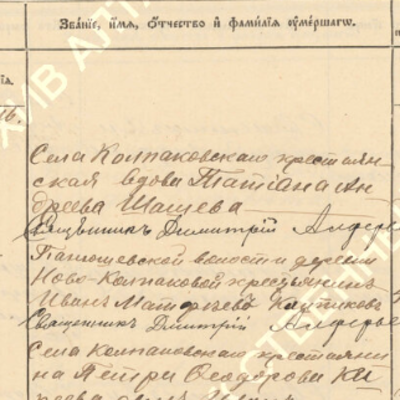 Званіе, имя, отчество и фамилія умершаго.
ія.
16.
Села Колпаковскаго крестьян-
ская вдова Татіана Ан
дреева Шашева
Священникъ Димитрій Алфер
волости деревни
Ново-Колпаковой крестьянинъ
Иванъ Матфѣевъ
Священникъ Димитрій Алферье
Села Колпаковскаго крестьяни
на Петра Ѳеодорова Ки
реева сынъ
ХИВ АЛТА